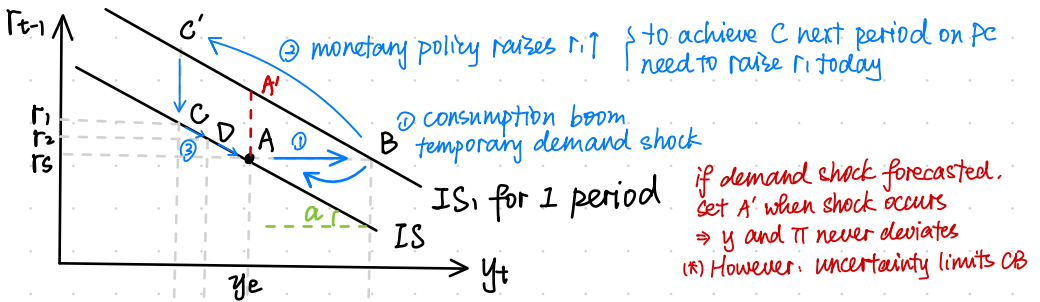 r t-1
C'
② monetary policy raises r₁↑
{ to achieve C next period on PC
need to raise r₁ today
A'
r₁
r₂
rs
C
D
A
①
B
③
① consumption boom
temporary demand shock
IS₁ for 1 period
a
IS
if demand shock forecasted.
set A' when shock occurs
⇒ y and π never deviates
(*) However: uncertainty limits CB
ye
yt